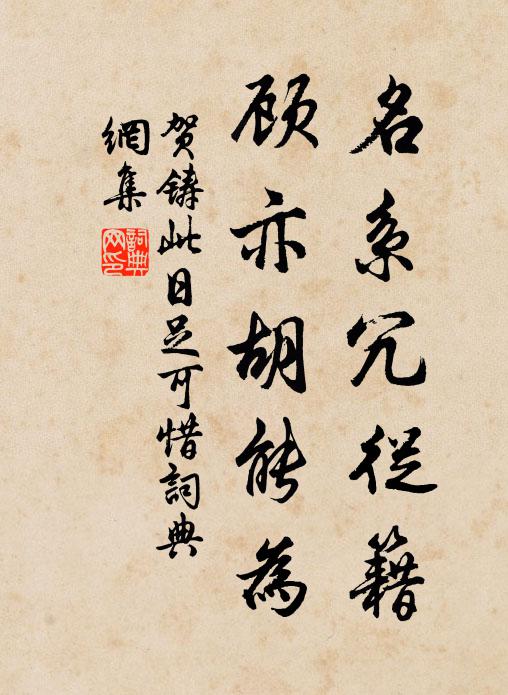 名系冗從籍
顾亦胡能為
贺鑄此日足可惜詞典
網集
詞典網印